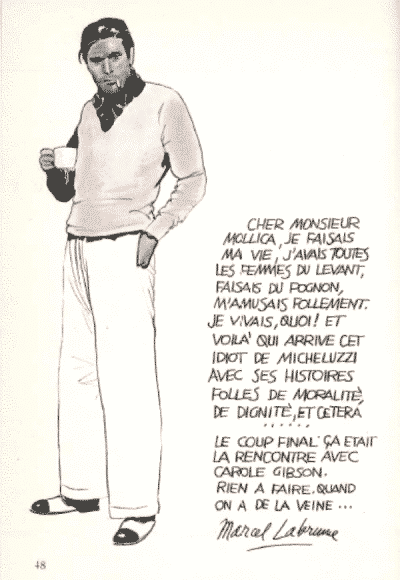 CHER MONSIEUR
MOLLICA, JE FAISAIS
MA VIE, J'AVAIS TOUTES
LES FEMMES DU LEVANT,
FAISAIS DU POGNON,
M'AMUSAIS FOLLEMENT.
JE VIVAIS, QUOI! ET
VOILA' QUI ARRIVE CET
IDIOT DE MICHELUZZI
AVEC SES HISTOIRES
FOLLES DE MORALITÈ,
DE DIGNITÈ, ET CETERA
......
LE COUP FINAL ÇA ETAIT
LA RENCONTRE AVEC
CAROLE GIBSON.
RIEN A FAIRE. QUAND
ON A DE LA VEINE ...
Marcel Labrume
48